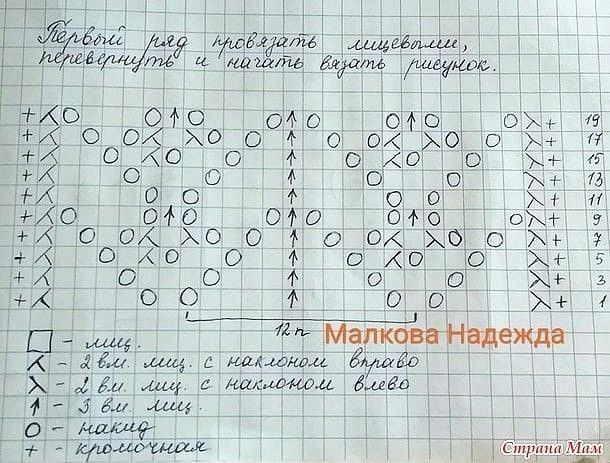 Первый ряд провязать лицевыми,
перевернуть и начать вязать рисунок.
19
17
15
13
11
9
7
5
3
1
12 п
Малкова Надежда
- лиц.
- 2 вм. лиц. с наклоном вправо
- 2 вм. лиц. с наклоном влево
- 3 вм. лиц.
- накид
+ - кромочная
Страна Мам